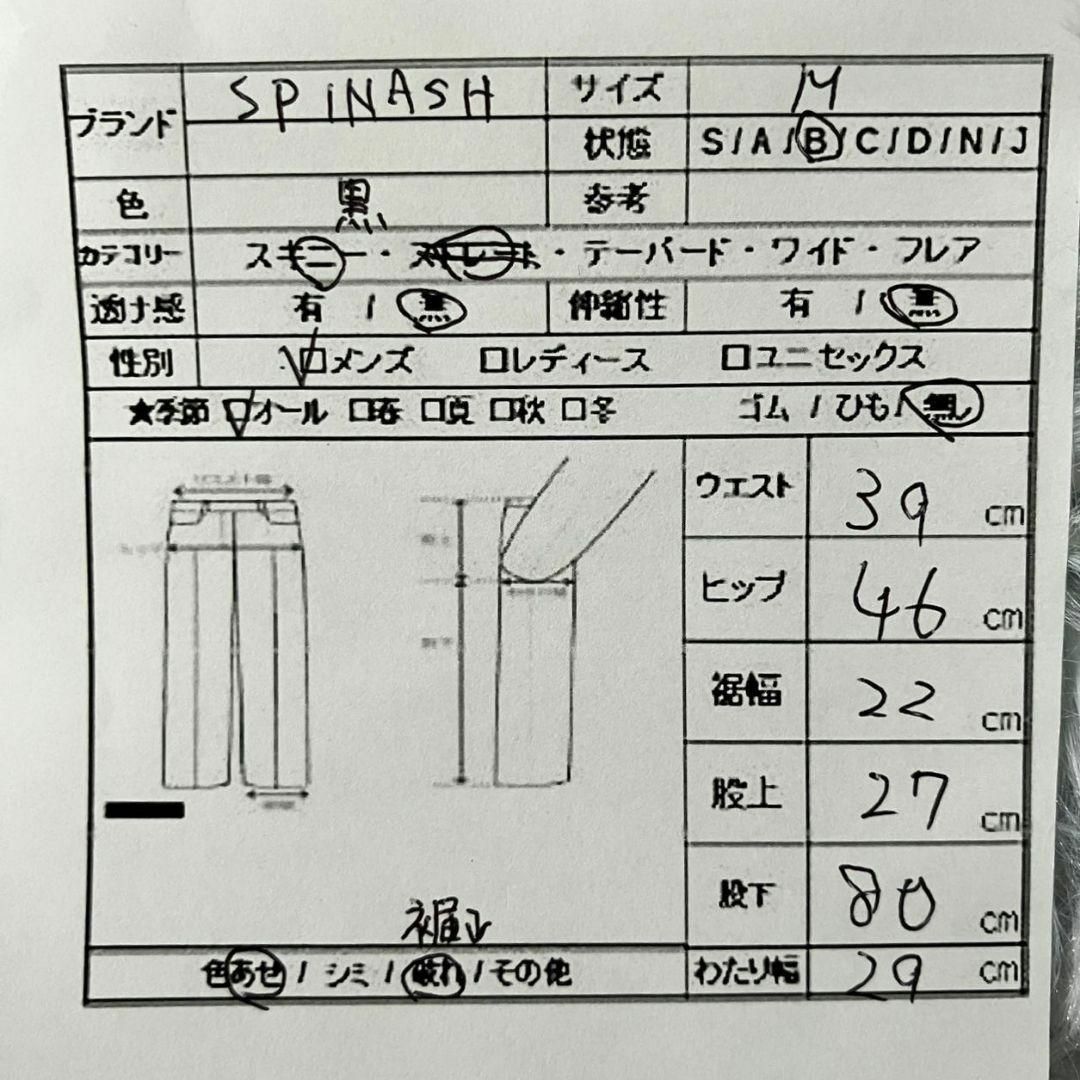 ブランド SPiNASH サイズ M
状態 S/A/B/C/D/N/J
色 黒 参考
カテゴリー スキニー・ストレート・テーパード・ワイド・フレア
透け感 有 / 無 伸縮性 有 / 無
性別 □メンズ □レディース □ユニセックス
★季節 □オール □春 □夏 □秋 □冬 ゴム / ひも / 無し
ウエスト 39 cm
ヒップ 46 cm
裾幅 22 cm
股上 27 cm
股下 80 cm
色あせ / シミ / 破れ / その他 わたり幅 29 cm